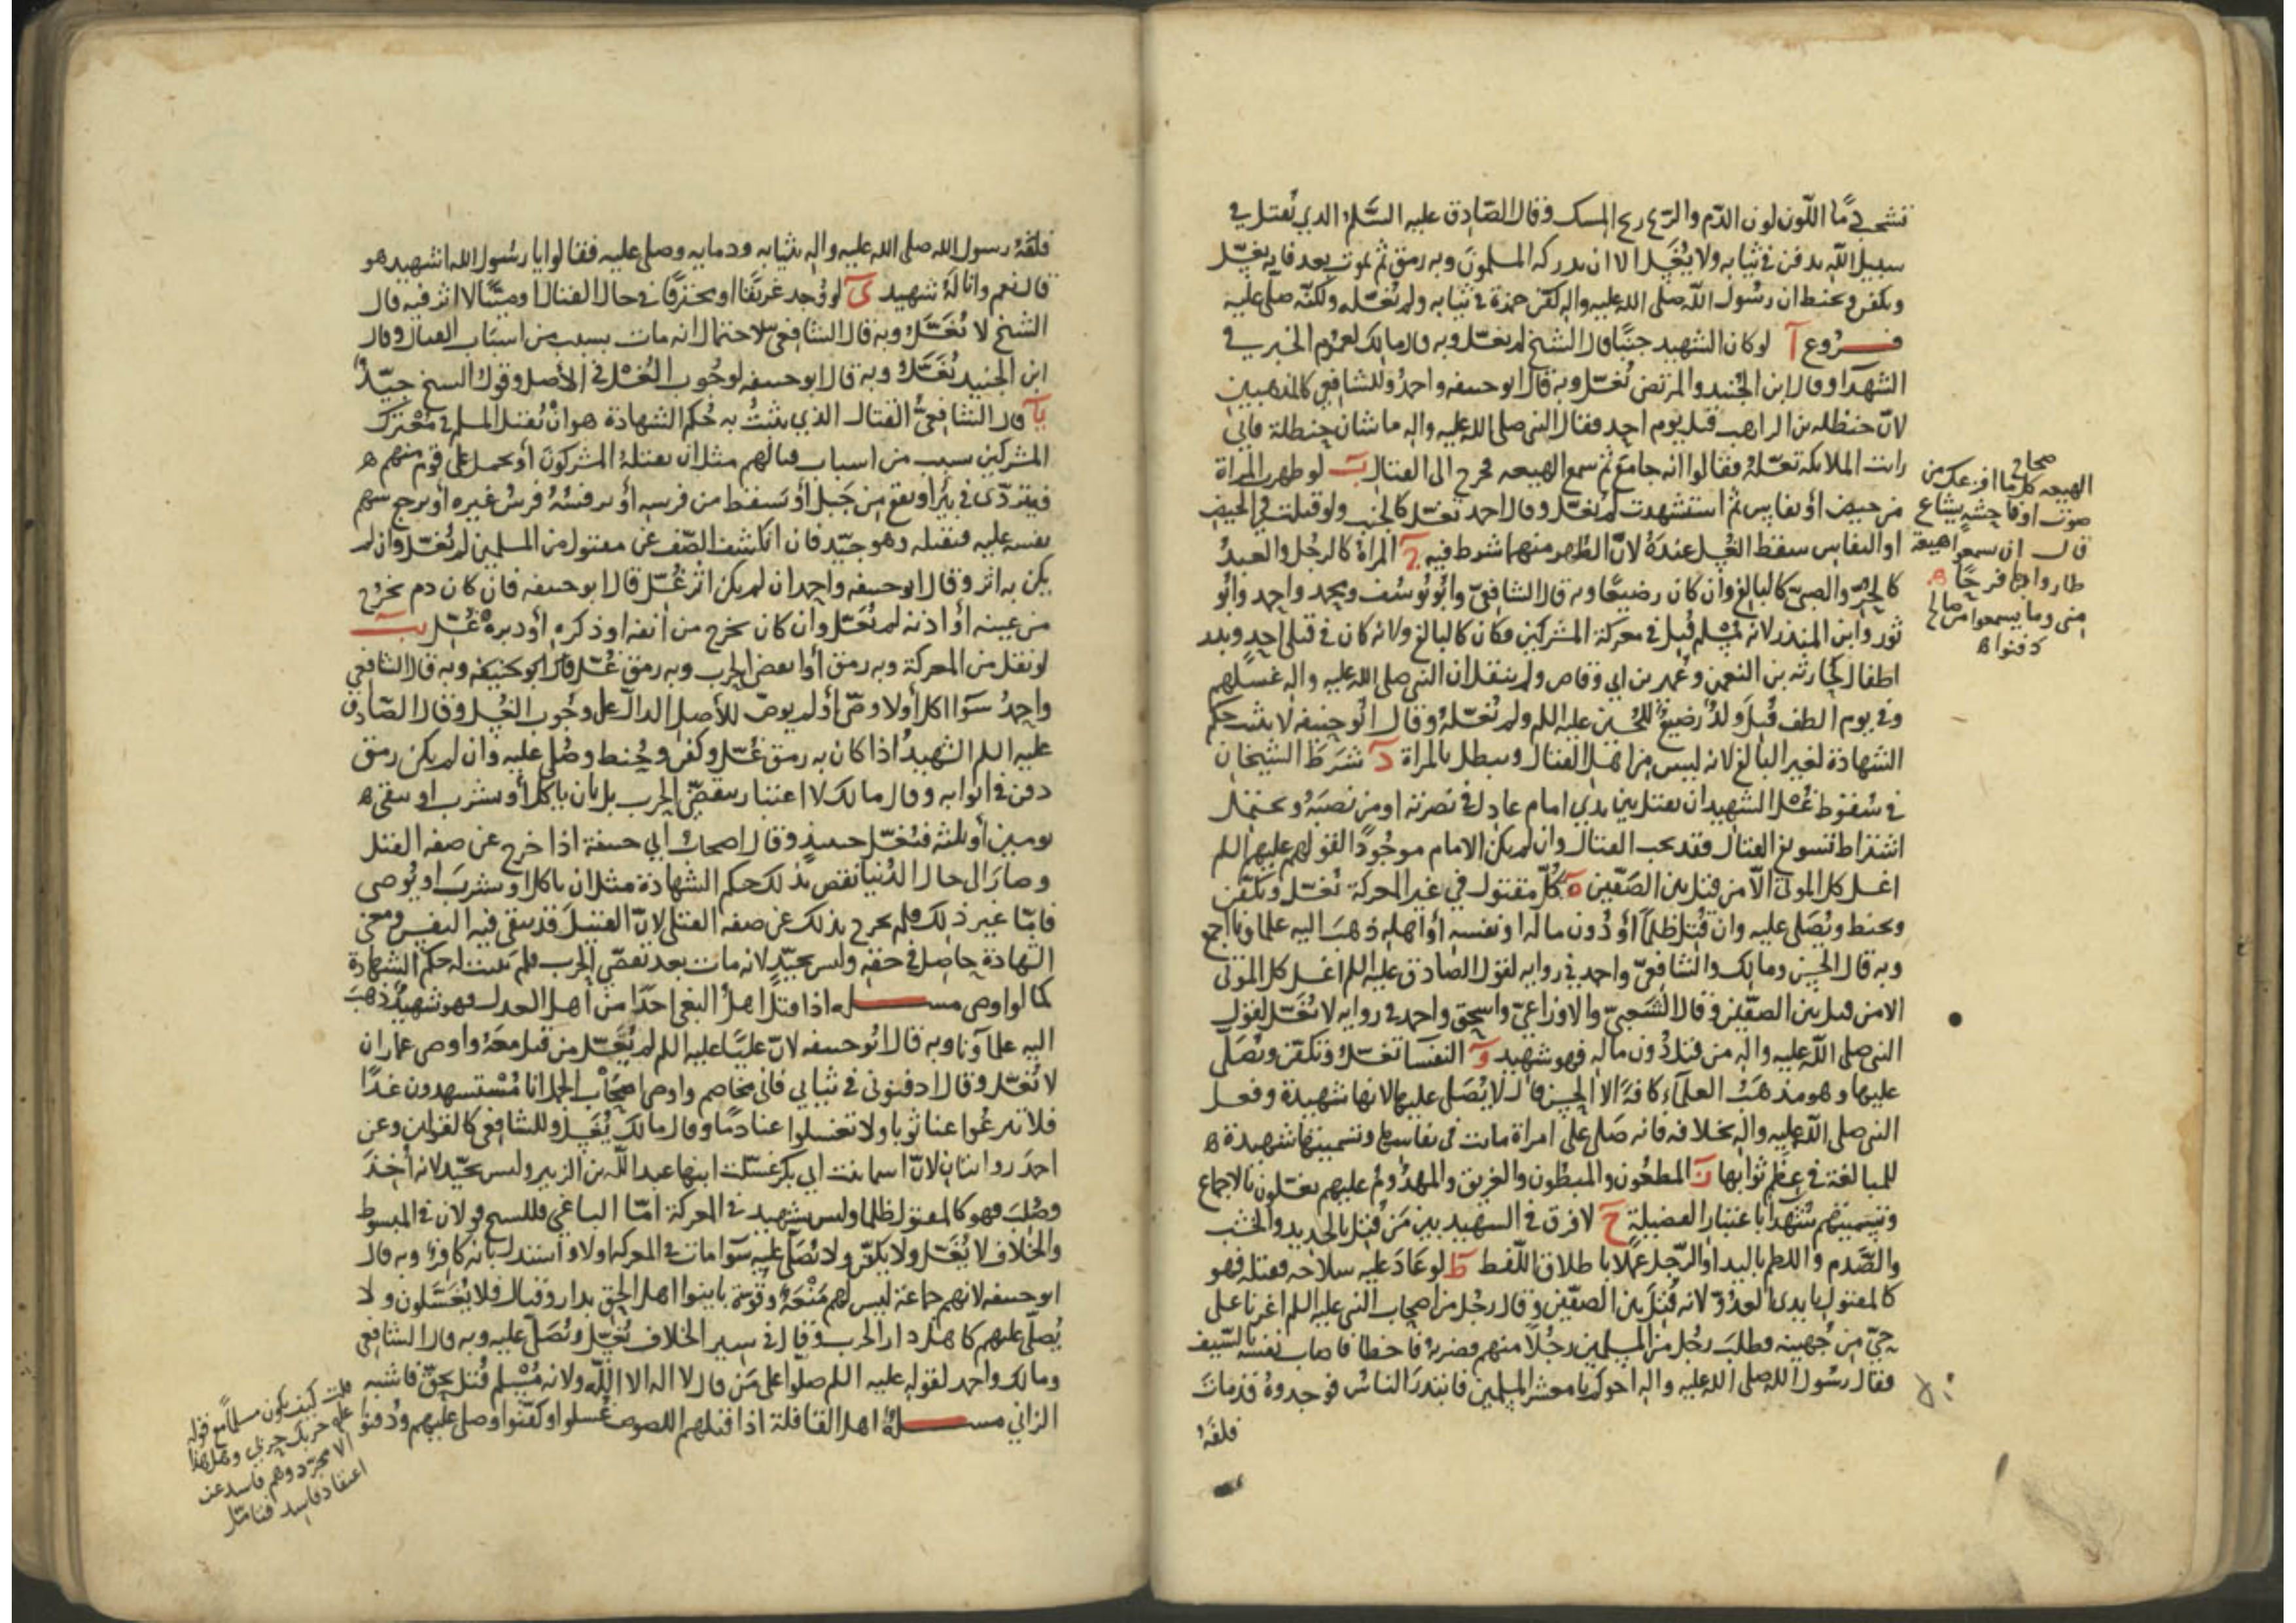 تشخب دمًا اللّون لون الدّم والريح ريح المسك وقال الصّادق عليه السّلم الذي يُقتل في
سبيل اللّه يدفن في ثيابه ولا يُغسّل الا ان يدركه المسلمون وبه رمق ثم يموت بعد فانه يغسّل
ويكفن ويحنط ان رسُول اللّه صلى الله عليه واله كفّن حمزة في ثيابه ولم يُغسّله ولكنّه صلّى عليه
فــروع آ لو كان الشهيد جنبًا قال الشيخ لم يغسّل وبه قال مالك لعموم الخبر في
الشهدآ وقال ابن الجُنيد والمرتضى يُغسّل وبه قال ابو حنيفه واحمد وللشافعي كالمذهبين
لانّ حنظله بن الراهب قتل يوم احد فقال النبي صلى الله عليه واله ما شان حنظلة فاني
رايت الملائكه تغسّله فقالوا انه جامع ثم سمع الهيعه فخرج الى القتال بـ لو طهرت المراة
من حيض أو نفاس ثم استشهدت لم تُغسّل وقال احمد تغسّل كالجنب ولو قتلت في الحيض
او النفاس سقط الغُسل عندهُ لانّ الطُهر منهما شرط فيه جـ المراة كالرجُل والعبدُ
كالحرّ والصبىّ كالبالغ وان كان رضيعًا وبه قال الشافعيّ وأبُو يُوسُف ومحمد واحمد وابُو
ثور وابن المنذر لانه مُسْلم قُتِل في معركة المشركين فكان كالبالغ ولانه كان في قتلى احد وبدر
اطفال كحارثه بن النعمن وعُمير بن ابي وقاص ولم ينقل ان النبي صلى الله عليه واله غسّلهم
وفي يوم الطف قُتِلَ ولدٌ رضيعٌ للحُسين عليه السلم ولم يُغسّلهُ وقال ابُو حنيفه لا يثبت حكم
الشهادة لغير البالغ لانه ليس من اهل القتال ويبطل بالمراة د شَرَطَ الشيخان
في سُقوط غُسْل الشهيد ان يقتل بين يدي امام عادل في نصرته او من نصبَهُ ويحتمل
اشتراط تسويغ القتال فقد يجب القتال وان لم يكن الامام موجُودًا لقولهم عليهم السلم
اغسل كل الموتى الاّ من قتل بين الصَفّين ه كُلّ مقتول في غير المعركة يُغسّل ويُكفّن
ويحنط ويُصلى عليه وان قُتِل ظلمًا أو دُون ماله او نفسه أو اهله ذهبَ اليه علماونا اجمع
وبه قال الحسن ومالك والشافعيّ واحمد في روايه لقول الصادق عليه السلم اغسل كل الموتى
الا من قتل بين الصفّين وقال الشعبيّ والاوزاعيّ واسحق واحمد في روايه لا يُغسّل لقول
النبي صلى اللّه عليه واله من قتل دُون ماله فهو شهيد و النفسآ تغسّل وتكفّن ويُصَلّى
عليها وهو مذهبُ العلمآء كافة الا الحسن قال لا يُصَلّى عليها لانها شهيدة وفعل
النبي صلى اللّه عليه واله بخلافه فانه صَلّى على امراة ماتت في نفاسها وتسميتها شهيدة
للمبالغة في عِظَم ثوابها ز المطعُون والمبطُون والغريق والمهدُوم عليهم يغسّلون بالاجماع
وتسميتهم شُهدآ باعتبار الفضيلة ح لا فرق في الشهيد بين مَن قُتِل بالحديد والخشب
والصَّدم واللطم باليد او الرّجل عملًا باطلاق اللّفظ ط لو عَادَ عليه سلاحه فقتله فهو
كالمقتول بايدى العدوّ لانه قُتِلَ بين الصفّين وقال رجُل من اصحاب النبي عليه السلم اغرنا على
حيّ من جُهينه فطلبَ رجُل من المسلمين رجُلًا منهم فضربهُ فاخطا فاصاب نفسَه بالسّيف
فقال رسُول الله صلى الله عليه واله اخوكم يا معشر المسلمين فابتدرَ الناسُ فوجدوهُ قد ماتَ
فلفّهُ
صحاح
الهيعه كل ما افزعك من
صوت او فاحشه يشاع
قال ان سمعوا هيعة
طاروا بها فرحًا
منى وما سمعوا من صالح
دفنوا
فلفّهُ رسول الله صلى الله عليه واله بثيابه ودمايه وصلى عليه فقالوا يا رسُول الله اشهيد هو
قال نعم وانا لهُ شهيد ىَ لو وُجد غريقًا او محترقًا في حال القتال او ميتًا لا اثر فيه قال
الشيخ لا يُغَسَّل وبه قال الشافعي لاحتمال انه مات بسبب من اسباب القتال وقال
ابن الجنيد يُغَسَّل وبه قال ابو حنيفه لوجُوب الغُسْل في الأصل وقول الشيخ جيّد
يآ قال الشافعىُّ القتال الذي يثبتُ به حُكم الشهادة هو انْ يُقتل المسلم في مُعْترك
المشركين بسبب من اسباب قتالهم مثل ان يقتلهُ المشركونَ أو يحمل على قوم منهم
فيتردّى في بئر او يقع من جَبل أو يَسقط من فرسه أو يرفسُهُ فرسُ غيره أو يرجع سهم
نفسه عليه فيقتله وهو جيّد فان انكشف الصّف عن مقتول من المسلمين لم يُغسّل وان لم
يكن به اثر وقال ابو حنيفه واحمد ان لم يكن اثر غُسّل قال ابو حنيفه فان كان دم يخرُج
من عينه أو اذنه لم يُغَسّل وان كان يخرج من أنفه او ذكره أو دبره غُسّل يب
لو نقل من المعركة وبه رمق أو انقضى الحرب وبه رمق غُسّل قال ابو حنيفه وبه قال الشافعي
واحمدُ سَوآ اكل أو لا وصّى أو لم يوص للأصل الدالّ على وجُوب الغُسل وقال الصّادق
عليه السلم الشهيدُ اذا كان به رمق غُسّل وكفن وحُنط وصُلى عليه وان لم يكن رمق
دفن في اثوابه وقال مالك لا اعتبار بتقضّى الحرب بل بان ياكل أو يشرب او يبقى
يومين أو ثلثه فيُغسّل حينيذ وقال اصحاب ابي حنيفة اذا خرج عن صفه القتل
وصارَ الى حال الدُنيا نقص بذلك حكم الشهادة مثل ان ياكل او يشربَ او يُوصى
فامّا غير ذلك فلم يخرج بذلك عن صفه القتلى لانّ القتيلَ قد يبقى فيه النفس ومعنى
الشهادة حاصل في حقه وليس بجيّد لانه مات بعد تقضّى الحرب فلم يثبت له حكم الشهادة
كما لو اوصى مســله اذا قتلَ اهلُ البغى احَدًا من أهل العدل فهو شهيدٌ ذهبَ
اليه علمآونا وبه قال ابُو حنيفه لانّ عليًا عليه السلم لم يُغسّل من قتل معَهُ واوصى عمّار ان
لا يُغسّل وقال ادفنونى في ثيابي فانى مخاصم واوصى اصحاب الجمل انا مُسْتشهدون غدًا
فلا تنزعُوا عنا ثوبا ولا تغسلوا عنا دمًا وقال مالك يُغسّل وللشافعى كالقولين وعن
احمَد روايتان لانّ اسما بنت أبي بكر غسّلت ابنها عبد اللّه بن الزبير وليس بجيّد لانه أخِذَ
وصُلِبَ فهو كالمقتول ظلما وليس بشهيد في المعركة امّا الباغي فللشيخ قولان في المبسوط
والخلاف لا يُغَسّل ولا يكفّن ولا يُصَلّى عليه سَوآ مات في المعركه او لا واستدل بانه كافرٌ وبه قال
ابو حنيفه لانهم جماعة ليس لهم مَنْعَةٌ وقُوة باينوا اهل الحق بدار وقتال فلا يُغَسّلون ولا
يُصلّى عليهم كاهل دار الحرب وقال في سير الخلاف يُغسّل ويُصَلّى عليه وبه قال الشافعى
ومالك واحمد لقوله عليه السلم صلّوا على مَن قال لا اله الا اللّه ولانه مُسْلم قُتل بحقّ فاشبه
الزاني مســلهُ اهل القافلة اذا قتلهم اللصوص غُسلوا وكفّنوا وصلى عليهم ودُفنوا
قلت كيف يكون مسلمًا مع قوله
عليه حربك حربي وهل هذا
الا مجرّد وهم فاسد عن
اعتقاد فاسد فتامّل